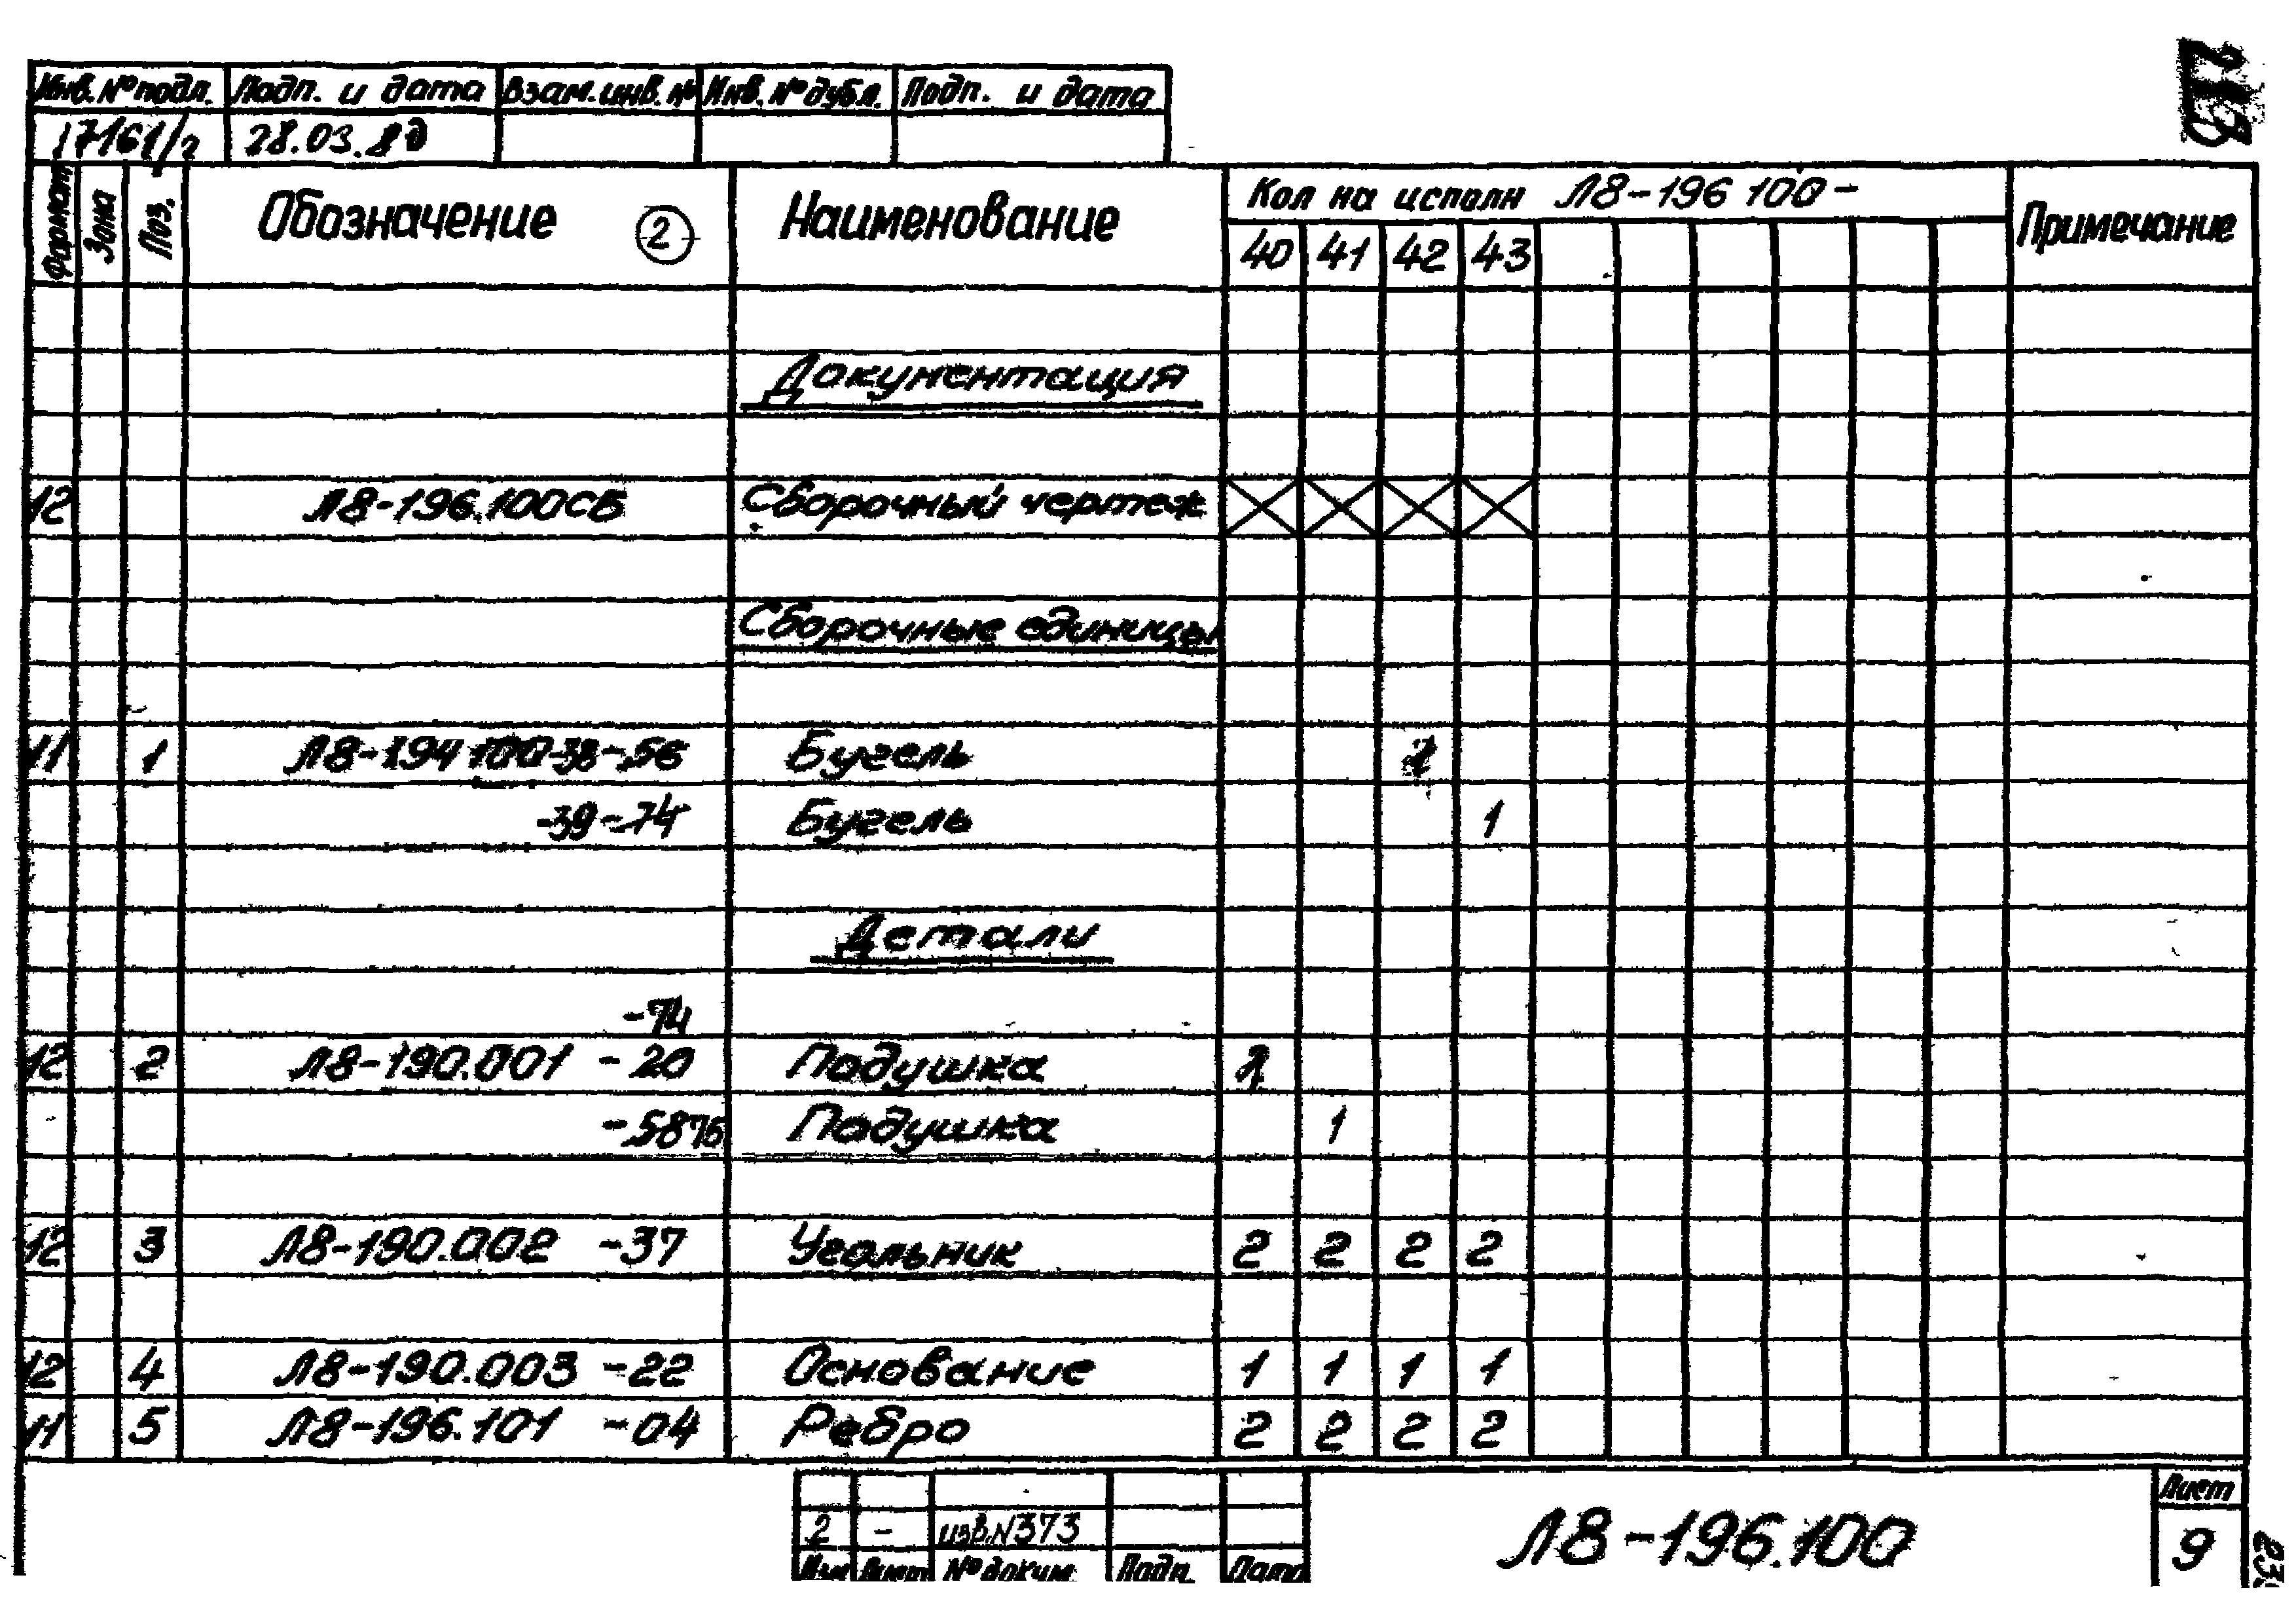 Инв.№подл. Подп. и дата Взам.инв.№ Инв.№дубл. Подп. и дата
17161/2 28.03.
Формат Зона Поз. Обозначение 2 Наименование Кол на исполн Л8-196 100- Примечание
40 41 42 43
Документация
12 Л8-196.100СБ Сборочный чертеж
Сборочные единицы
11 1 Л8-194 100-38-56 Бугель
-39-74 Бугель 1
Детали
-74
12 2 Л8-190.001 -20 Подушка
-5875 Подушка 1
12 3 Л8-190.002 -37 Угольник 2 2 2 2
12 4 Л8-190.003 -22 Основание 1 1 1 1
11 5 Л8-196.101 -04 Ребро 2 2 2 2
2 - изв.N373
Изм Лист № докум. Подп. Дата
Л8-196.100
Лист
9